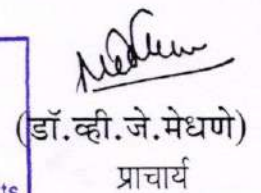 (डॉ.व्ही.जे.मेधणे)
प्राचार्य
ts